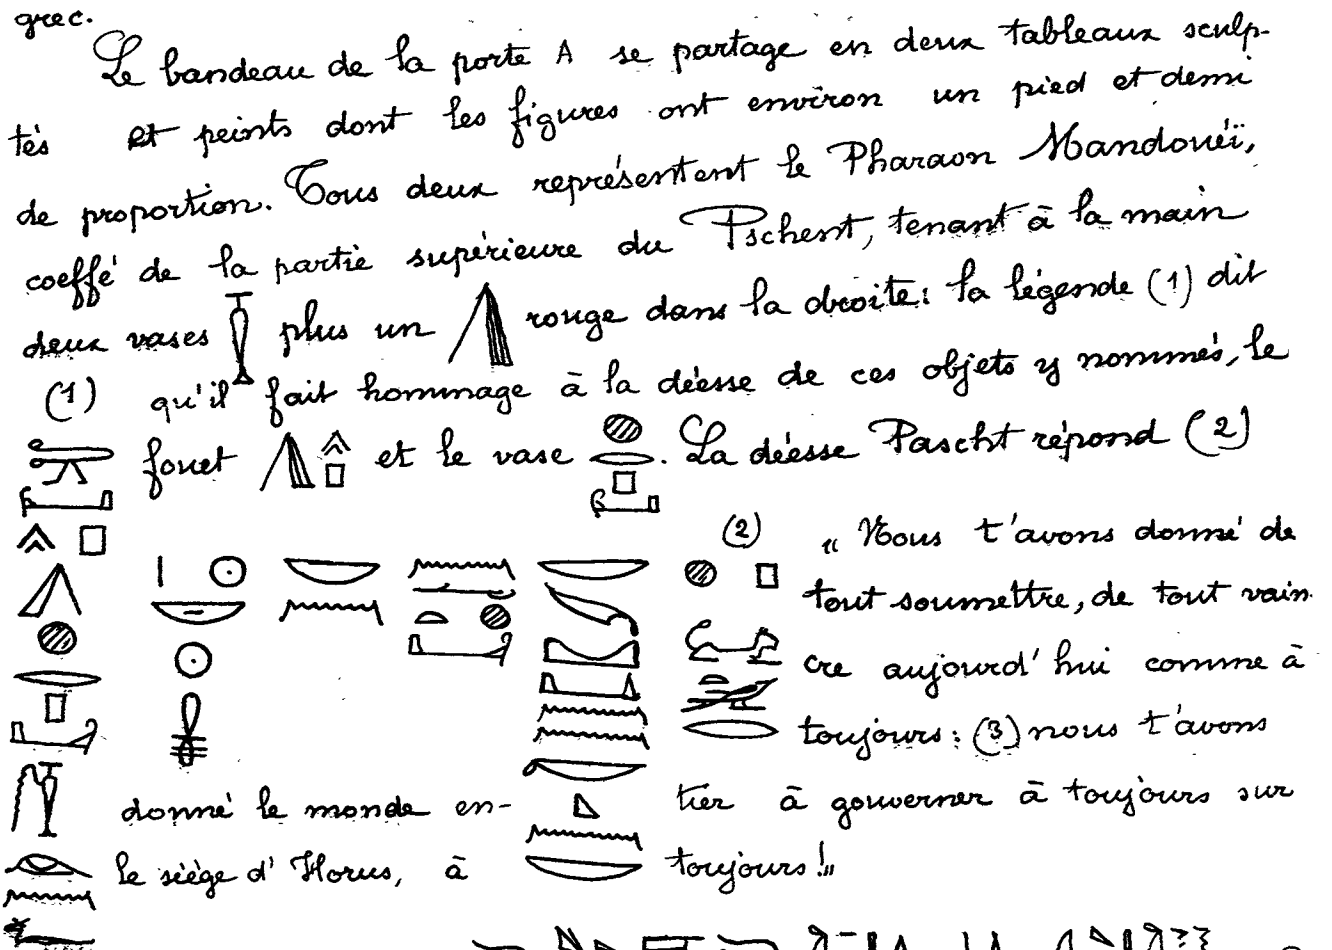 grec.
Le bandeau de la porte A se partage en deux tableaux sculp-
tés et peints dont les figures ont environ un pied et demi
de proportion. Tous deux représentent le Pharaon Mandouéï,
coeffé de la partie supérieure du Pschent, tenant à la main
deux vases plus un rouge dans la droite: la légende (1) dit
(1) qu'il fait hommage à la déesse de ces objets y nommés, le
fouet et le vase . La déesse Pascht répond (2)
(2) « Nous t'avons donné de
tout soumettre, de tout vain-
cre aujourd'hui comme à
toujours: (3) nous t'avons
donné le monde en- tier à gouverner à toujours sur
le siège d'Horus, à toujours! »